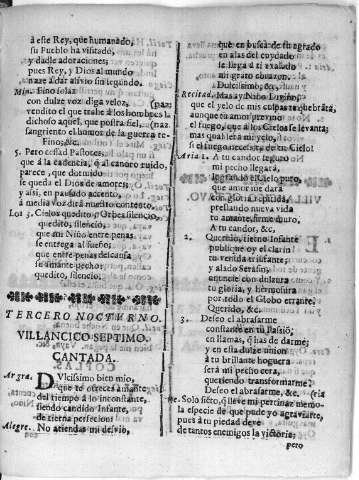 à este Rey, que humanado,
su Pueblo ha visitado,
y dadle adoraciones;
pues Rey, y Dios al mundo
naze à dar alivio sin segundo.
Min. Fino solaz
con dulze voz diga veloz, (paz;
rendito el que trahe à los hombres la
dichoso aquel, que
sangriento el humor de la guerra te-
Fino, &c.
5. Pero cessad Pastores,
que à la cadencia, q al canoro ruido,
parece, que dormido
se queda el Dios de amores;
y assi, en pausado acento,
à media voz dirà nuestro contento.
Los 5. Cielos quedito, Orbes silencio,
quedito, silencio,
que mi Niño entre penas
se entrega al sueño;
que entre penas descansa
se amante pecho;
quedito, silencio.
TERCERO NOCTURNO.
VILLANCICO SEPTIMO.
CANTADA.
DVlcissimo bien mio,
que te ofreces amante
del tiempo à lo inconstante,
siendo candido Infante,
de tierna perfecion:
Alegre. No atiendas mi desvio,
que en busca de su agrado
en alas del cuydado
se llega à ti exalado
mi grato corazon.
Dulcissimo, &c.
Recitad. Mas ay Niño Divino,
que el yelo de mis culpas te quebràta,
aunque tu amor previno
el fuego, que à los Cielos se levanta;
mas qual serà mi yelo,
si el fuego necessita de tu Cielo!
Aria 1. A tu candor seguro
mi pecho llegarà,
lograrà el Cielo puro,
que amor me darà
con gloria repetida
prestando nueva vida
tu amante, firme muro,
A tu candor, &c.
2. Querido, tierno Infante
publique oy el clarin
tu venida triunfante;
y alado Serafin,
entone con dulzura
tu gloria, y hermosura
por todo el Globo errante.
Querido, &c.
3. Deseo el abrasarme
constante en tu Passiò;
en llamas, q has de darme;
y en esta dulze union
à tu brillante hoguera
serà mi pecho cera,
queriendo transformarme.
Deseo el abrasarme, &c. (ria
Solo siéto, q lleve mi pertinàz memo-
la especie de que pude yo agraviarte,
pues à tu piedad deve
de tantos enemigos la victoria;
pero